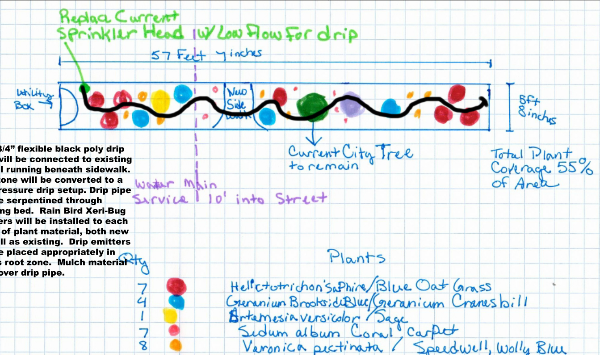 Replace Current
Sprinkler Head w/ Low Flow For drip
57 Feet 7 inches
Utility
Box
New
Side
walk
8ft
8 inches
3/4" flexible black poly drip
will be connected to existing
running beneath sidewalk.
zone will be converted to a
pressure drip setup. Drip pipe
serpentined through
bed. Rain Bird Xeri-Bug
will be installed to each
of plant material, both new
as existing. Drip emitters
placed appropriately in
root zone. Mulch material
over drip pipe.
Current City Tree
to remain
Total Plant
Coverage 55%
of Area
Water Main
Service 10' into Street
Qty Plants
7 Helictotrichon Saphire/Blue Oat Grass
4 Geranium Brookside Blue/Geranium Cranesbill
1 Artamesia versicolor / Sage
7 Sedum album Coral Carpet
8 Varonica pectinata / Speedwell, Wolly Blue